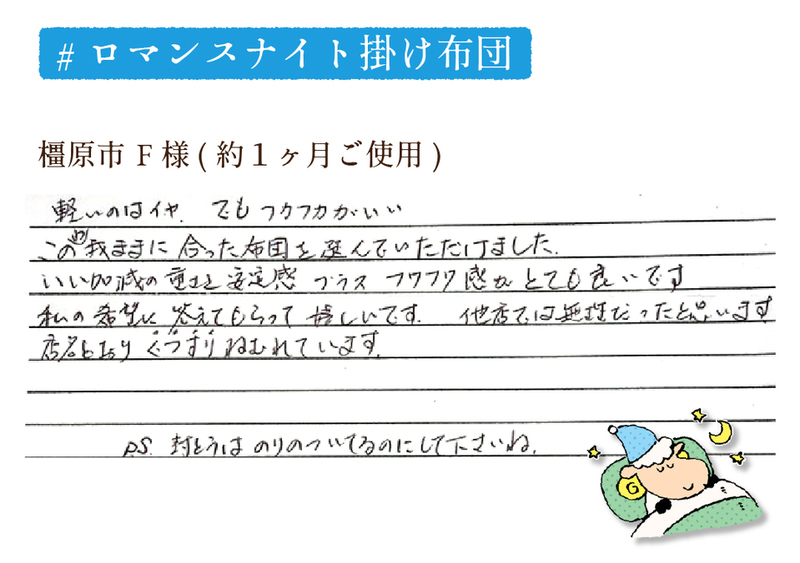 # ロマンスナイト掛け布団
橿原市 F 様 ( 約１ヶ月ご使用 )
軽いのはイヤ. でもフカフカがいい
この我ままに 合った布団を選んでいただけました.
いい加減の重さと安定感 プラス フワフワ感が とても良いです
私の希望に 答えてもらって 嬉しいです. 他店では無理だったと思います
店名どおり ぐっすり ねむれています.
P.S. 封とうは のりのついてるのにして下さいね.